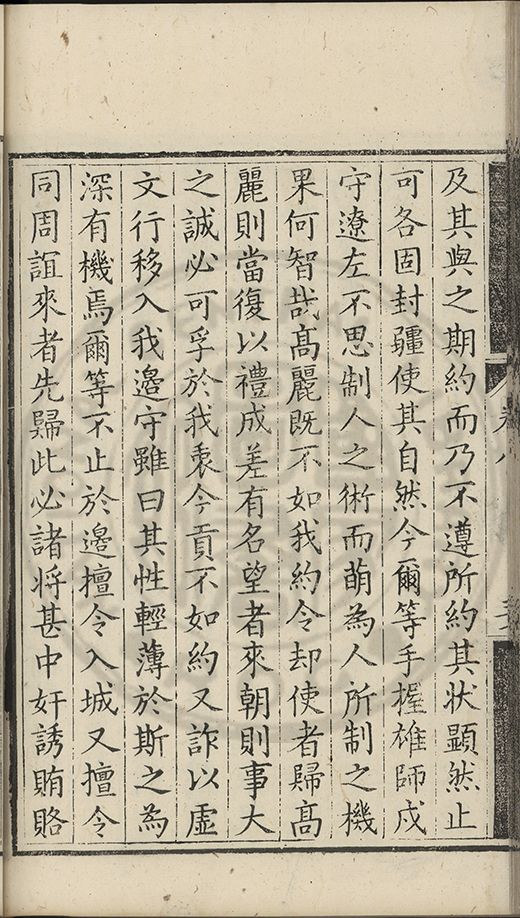 及其與之期約而乃不遵所約其狀顯然止
可各固封疆使其自然今爾等手握雄師戍
守遼左不思制人之術而萌為人所制之機
果何智哉髙麗既不如我約令却使者歸髙
麗則當復以禮成差有名望者來朝則事大
之誠必可孚於我衷今貢不如約又詐以虛
文行移入我邉守雖曰其性輕薄於斯之為
深有機焉爾等不止於邉擅令入城又擅令
同周誼來者先歸此必諸將甚中奸誘賄賂